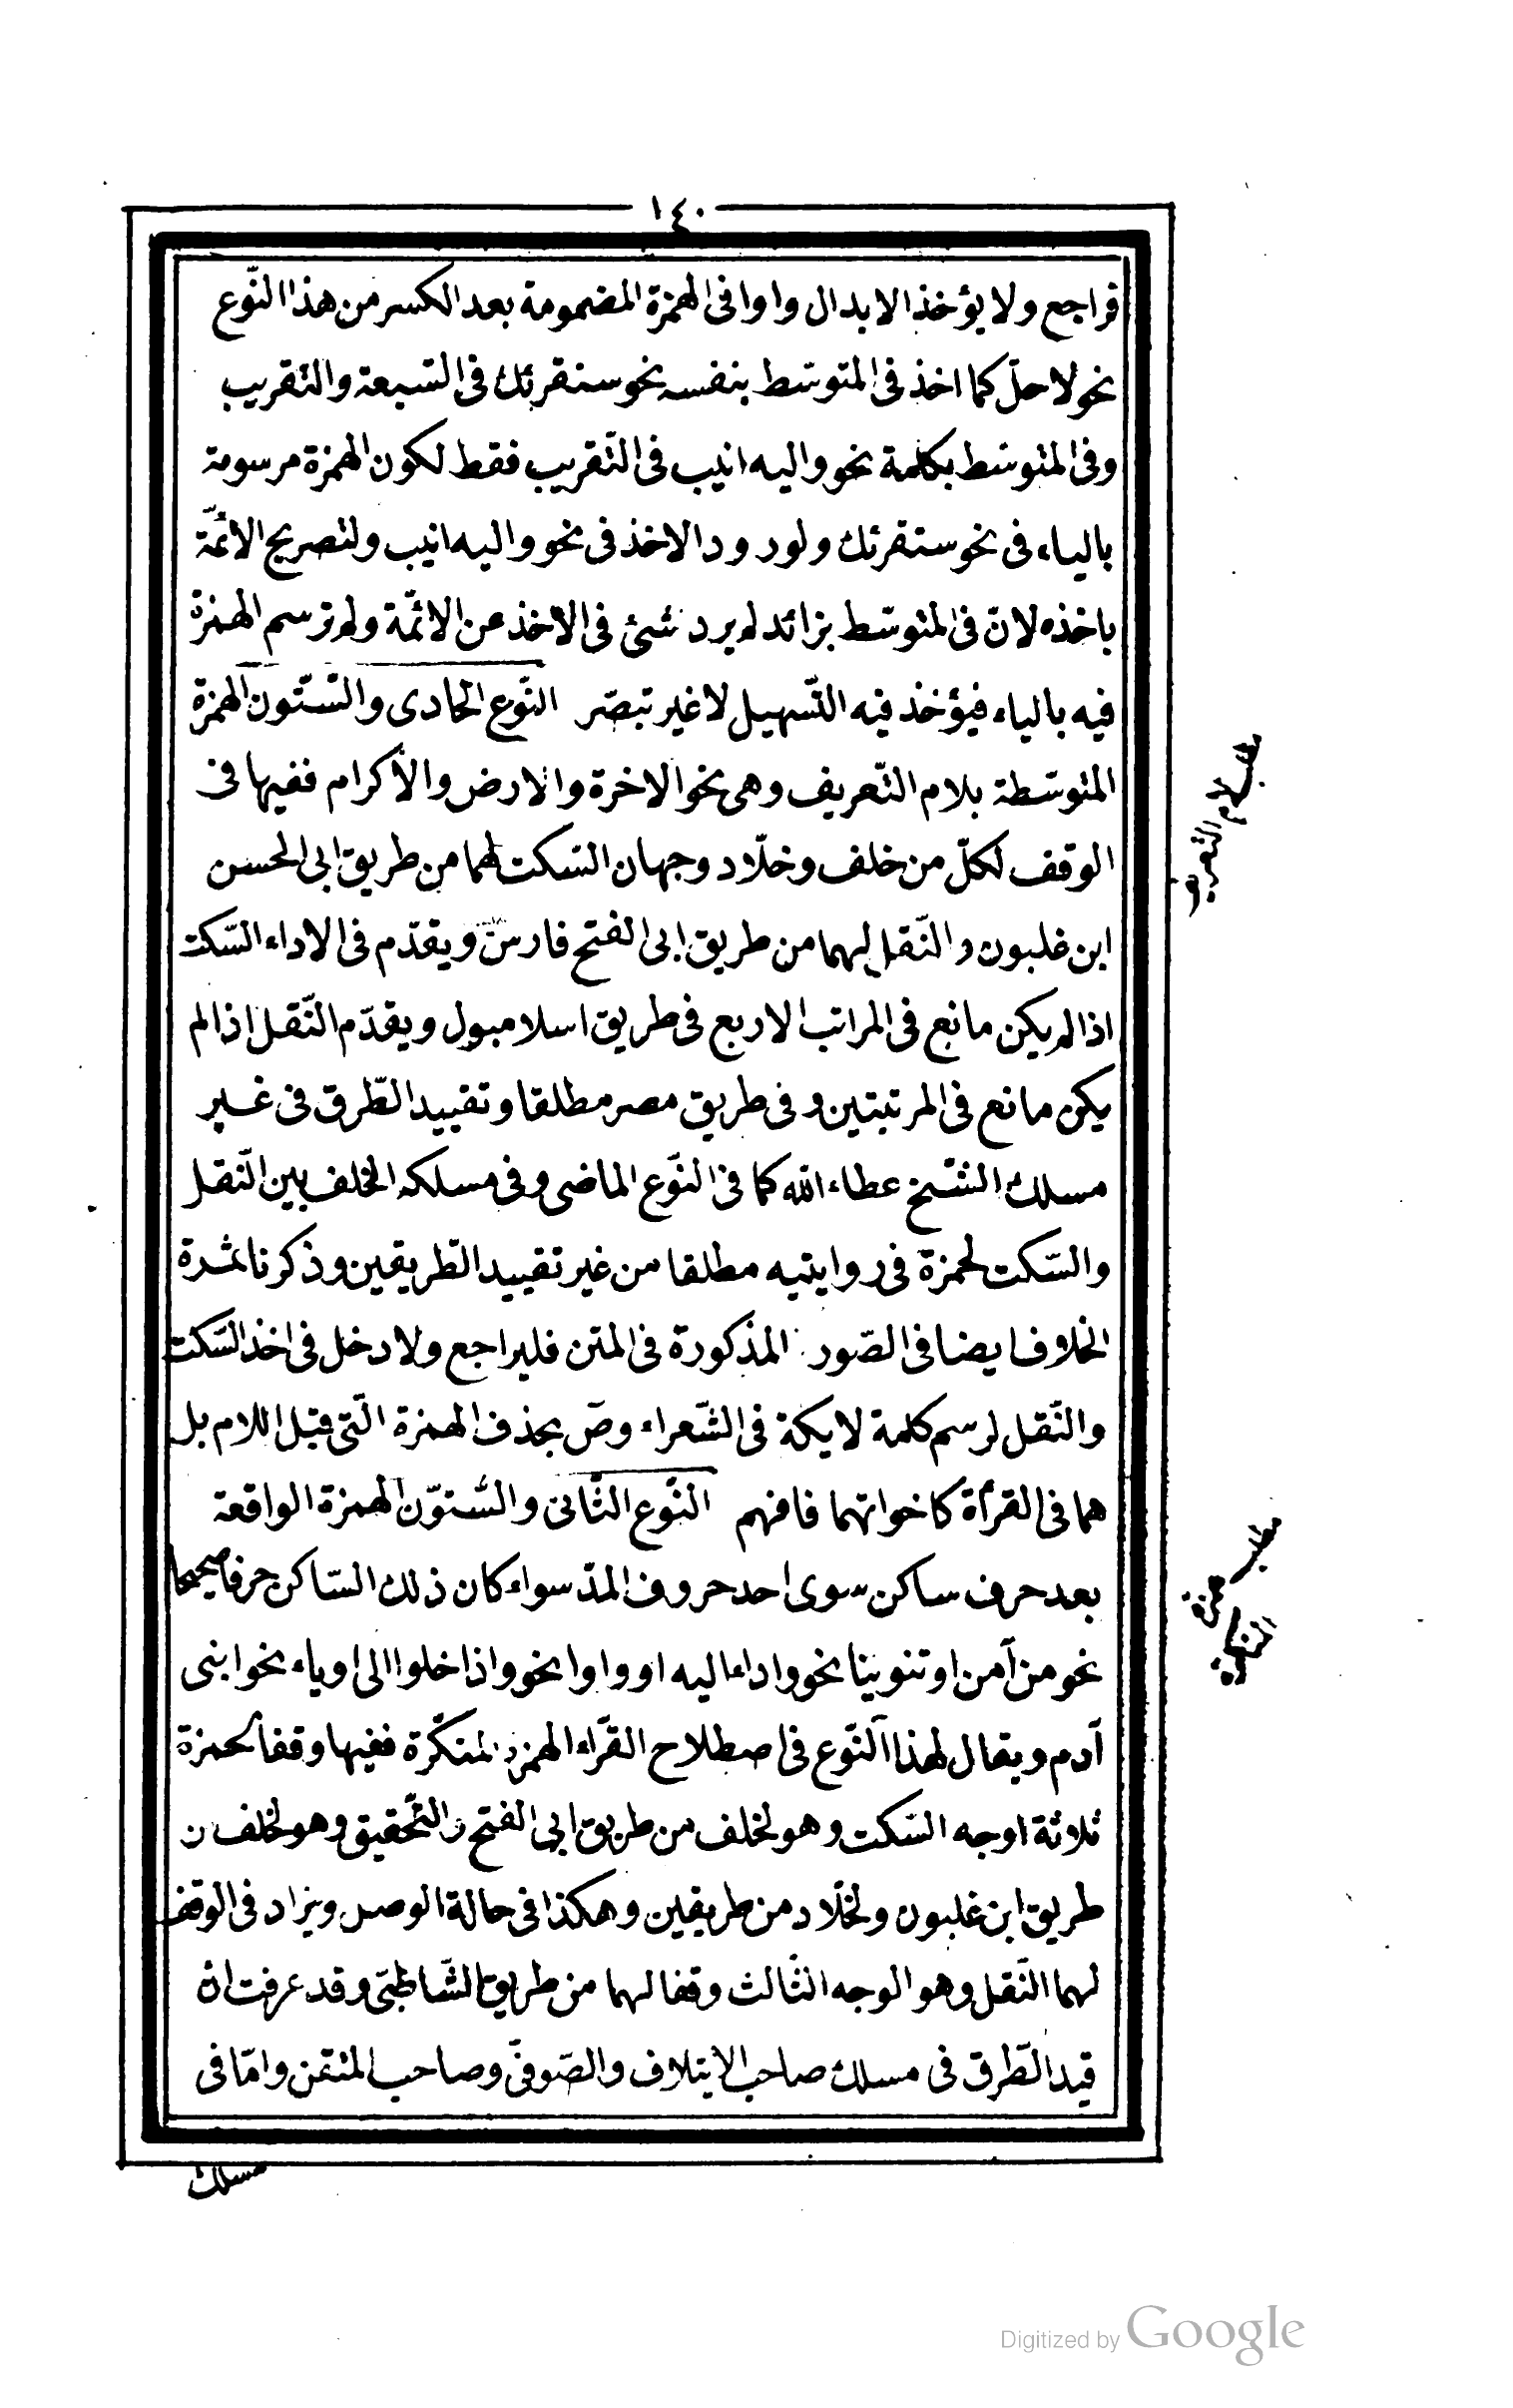 ١٤٠
فراجع ولا يؤخذ الابدال واوا فى الهمزة المضمومة بعد الكسر من هذا النّوع
نحو لاحلّ كما اخذ فى المتوسّط بنفسه نحو سنقرئك فى السّبعة والتّقريب
وفى المتوسّط بكلمة نحو واليه انيب فى التّقريب فقط لكون الهمزة مرسومة
بالياء فى نحو سنقرئك ولورود الاخذ فى نحو واليه انيب ولتصريح الائمّة
باخذه لانّ فى المتوسّط بزائد لم يرد شئ فى الاخذ عن الائمّة ولم ترسم الهمزة
فيه بالياء فيؤخذ فيه التّسهيل لاغير تبصّر النّوع الحادى والسّتّون الهمزة
المتوسّطة بلام التّعريف وهى نحو الاخرة والارض والاكرام ففيها فى
الوقف لكلّ من خلف وخلّاد وجهان السّكت لهما من طريق ابى الحسن
ابن غلبون والنّقل لهما من طريق ابى الفتح فارس ويقدّم فى الاداء السّكت
اذا لم يكن مانع فى المراتب الاربع فى طريق اسلامبول ويقدّم النّقل اذا لم
يكن مانع فى المرتبتين وفى طريق مصر مطلقا وتقييد الطّرق فى غير
مسلك الشّيخ عطاء الله كما فى النّوع الماضى وفى مسلكه الخلف بين النّقل
والسّكت لحمزة فى روايتيه مطلقا من غير تقييد الطّريقين وذكرنا ثمرة
الخلاف ايضا فى الصّور المذكورة فى المتن فليراجع ولا دخل فى اخذ السّكت
والنّقل لرسم كلمة لايكة فى الشّعراء وصۤ بحذف الهمزة الّتى قبل اللام بل
هما فى القرأة كاخواتهما فافهم النّوع الثّانى والسّتّون الهمزة الواقعة
بعد حرف ساكن سوى احد حروف المدّ سواء كان ذلك السّاكن حرفا صحيحا
نحو من آمن او تنوينا نحو واداء اليه او واوا نحو واذا خلوا الى او ياء نحو ابنى
آدم ويقال لهذا النّوع فى اصطلاح القرّاء الهمزة المنكّرة ففيها وقفا لحمزة
ثلاثة اوجه السّكت وهو لخلف من طريق ابى الفتح والتّحقيق وهو لخلف من
طريق ابن غلبون ولخلّاد من طريقين وهكذا فى حالة الوصل ويزاد فى الوقف
لهما النّقل وهو الوجه الثّالث وقفا لهما من طريق الشّاطبىّ وقد عرفت انّ
قيد الطّرق فى مسلك صاحب الايتلاف والصّوفىّ وصاحب المتقن وامّا فى
مسلك
بلام التّعريف
مطلب همزة
المنكّرة
Digitized by Google